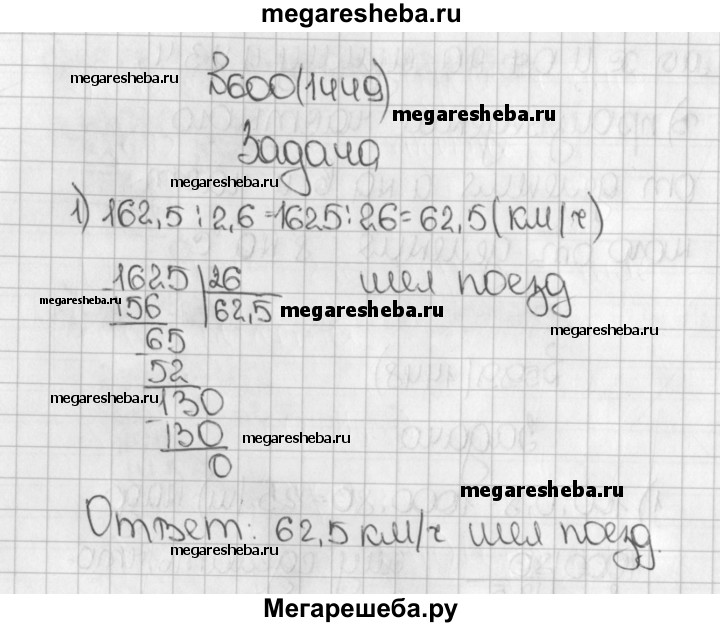 megaresheba.ru
megaresheba.ru
В600(1449)
megaresheba.ru
Задача
megaresheba.ru
1) 162,5 : 2,6 = 1625 : 26 = 62,5 (км/ч)
1625 | 26 шел поезд
megaresheba.ru
156 62,5 megaresheba.ru
65 megaresheba.ru
52
megaresheba.ru 130
130 megaresheba.ru
0
megaresheba.ru
Ответ: 62,5 км/ч шел поезд.
megaresheba.ru
Мегарешеба.ру